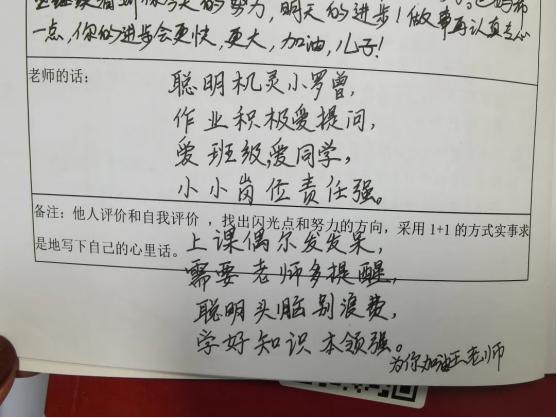 今天的努力,明天的进步!做事再认真专心
一点,你的进步会更快,更大,加油,儿子!
老师的话:
聪明机灵小罗曾,
作业积极爱提问,
爱班级,爱同学,
小小岗位责任强。
备注:他人评价和自我评价,找出闪光点和努力的方向,采用1+1的方式实事求
是地写下自己的心里话。
上课偶尔发发呆,
需要老师多提醒,
聪明头脑别浪费,
学好知识本领强。
为你加油王老师